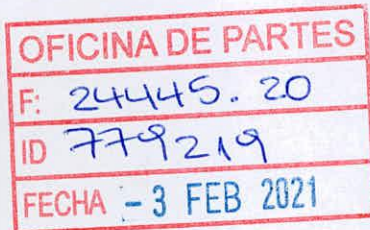 OFICINA DE PARTES
F: 24445.20
ID 779219
FECHA - 3 FEB 2021